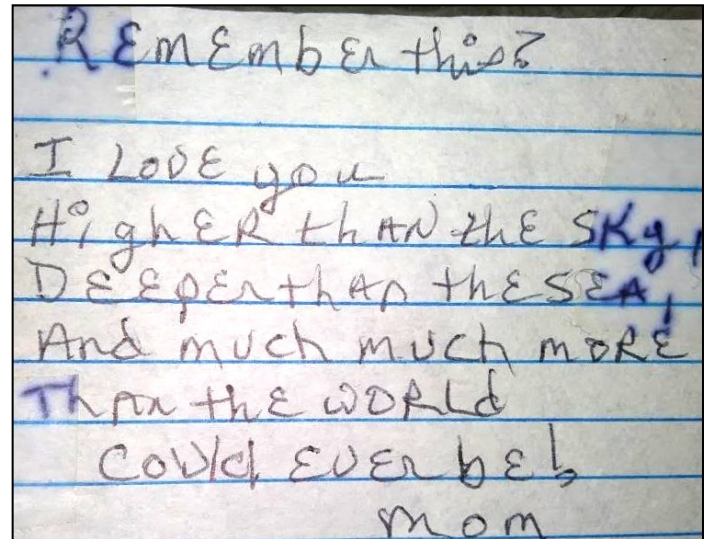 Remember this?
I Love you
Higher than the sky,
Deeper than the sea,
And much much more
Than the world
could ever be!
mom